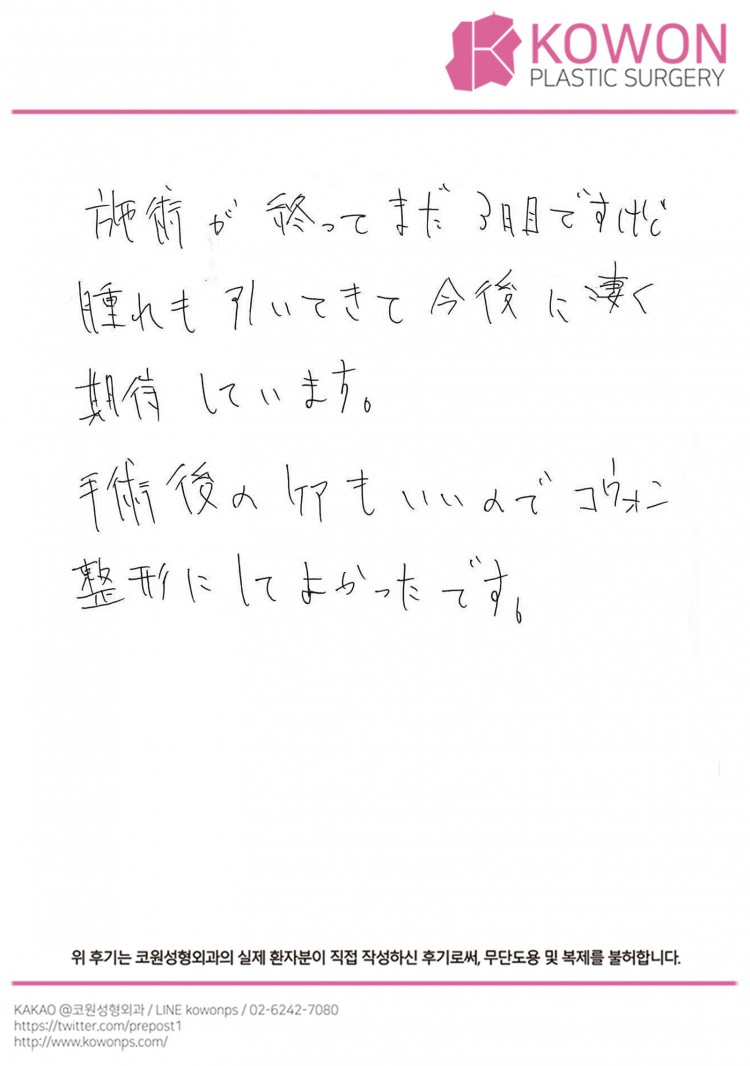 KOWON
PLASTIC SURGERY
施術が終ってまだ3日目ですけど
腫れも引いてきて今後に凄く
期待しています。
手術後のケアもいいのでコウォン
整形にしてよかったです。
위 후기는 코원성형외과의 실제 환자분이 직접 작성하신 후기로써, 무단도용 및 복제를 불허합니다.
KAKAO @코원성형외과 / LINE kowonps / 02-6242-7080
https://twitter.com/prepost1
http://www.kowonps.com/